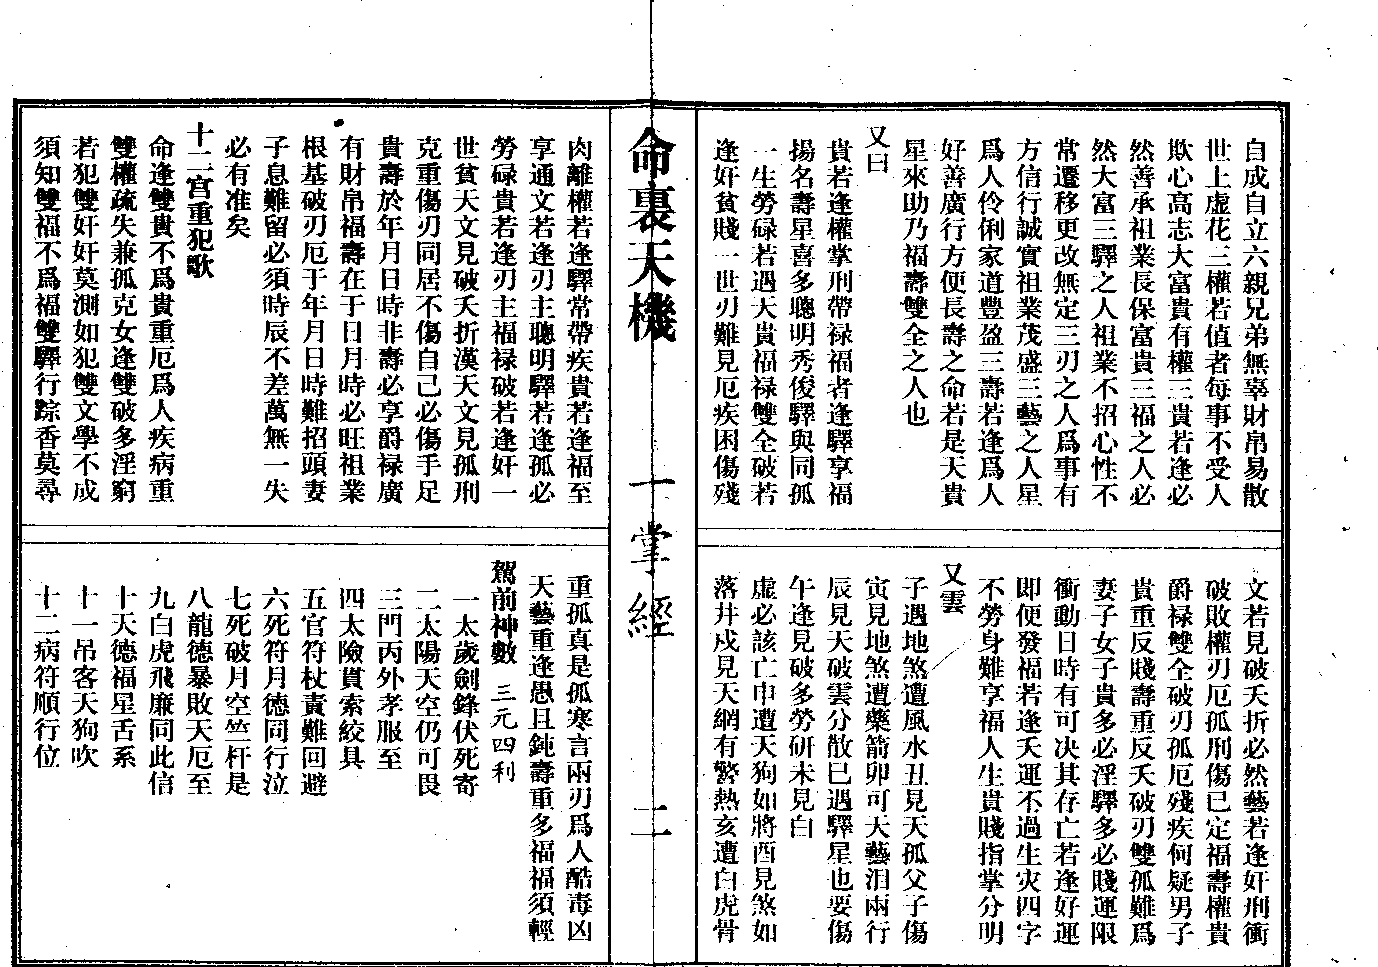 自成自立六親兄弟無辜財帛易散
世上虛花三權若值者每事不受人
欺心高志大富貴有權三貴若逢必
然善承祖業長保富貴三福之人必
然大富三驛之人祖業不招心性不
常遷移更改無定三刃之人爲事有
方信行誠實祖業茂盛三藝之人星
爲人伶俐家道豐盈三壽若逢爲人
好善廣行方便長壽之命若是天貴
星來助乃福壽雙全之人也
又曰
貴若逢權掌刑帶祿福者逢驛享福
揚名壽星喜多聰明秀俊驛與同孤
一生勞碌若遇天貴福祿雙全破若
逢奸貧賤一世刃難見厄疾困傷殘
文若見破夭折必然藝若逢奸刑衝
破敗權刃厄孤刑傷已定福壽權貴
爵祿雙全破刃孤厄殘疾何疑男子
貴重反賤壽重反夭破刃雙孤難爲
妻子女子貴多必淫驛多必賤運限
衝動日時有可決其存亡若逢好運
即便發福若逢夭運不過生灾四字
不勞身難享福人生貴賤指掌分明
又雲
子遇地煞遭風水丑見天孤父子傷
寅見地煞遭藥箭卯可天藝泪兩行
辰見天破雲分散巳遇驛星也要傷
午逢見破多勞研未見白
虛必該亡申遭天狗如將酉見煞如
落井戍見天網有繁熱亥遭白虎骨
命裏天機
一掌經
二
肉離權若逢驛常帶疾貴若逢福至
享通文若逢刃主聰明驛若逢孤必
勞碌貴若逢刃主福祿破若逢奸一
世貧天文見破夭折漢天文見孤刑
克重傷刃同居不傷自己必傷手足
貴壽於年月日時非壽必享爵祿廣
有財帛福壽在于日月時必旺祖業
根基破刃厄于年月日時難招頭妻
子息難留必須時辰不差萬無一失
必有准矣
十二宮重犯歌
命逢雙貴不爲貴重厄爲人疾病重
雙權疏失兼孤克女逢雙破多淫窮
若犯雙奸奸莫測如犯雙文學不成
須知雙福不爲福雙驛行踪杳莫尋
重孤真是孤寒言兩刃爲人酷毒凶
天藝重逢愚且鈍壽重多福福須輕
駕前神數 三元四利
一太歲劍鋒伏死寄
二太陽天空仍可畏
三門丙外孝服至
四太險貫索絞具
五官符杖責難回避
六死符月德同行泣
七死破月空竺杆是
八龍德暴敗天厄至
九白虎飛廉同此信
十天德福星舌系
十一吊客天狗吠
十二病符順行位